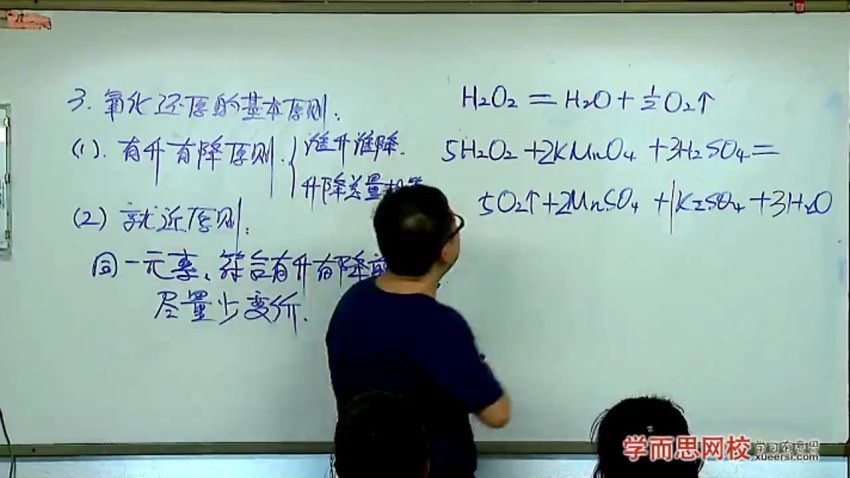 3. 氧化还原的基本原则:
(1). 有升有降原则 { 谁升谁降.
升降总量相等
(2) 就近原则:
同一元素、符合有升有降前
尽量少变价.
H₂O₂ = H₂O + ½O₂↑
5H₂O₂ + 2KMnO₄ + 3H₂SO₄ =
5O₂↑ + 2MnSO₄ + 1K₂SO₄ + 3H₂O
学而思网校 学习有意思
xueersi.com